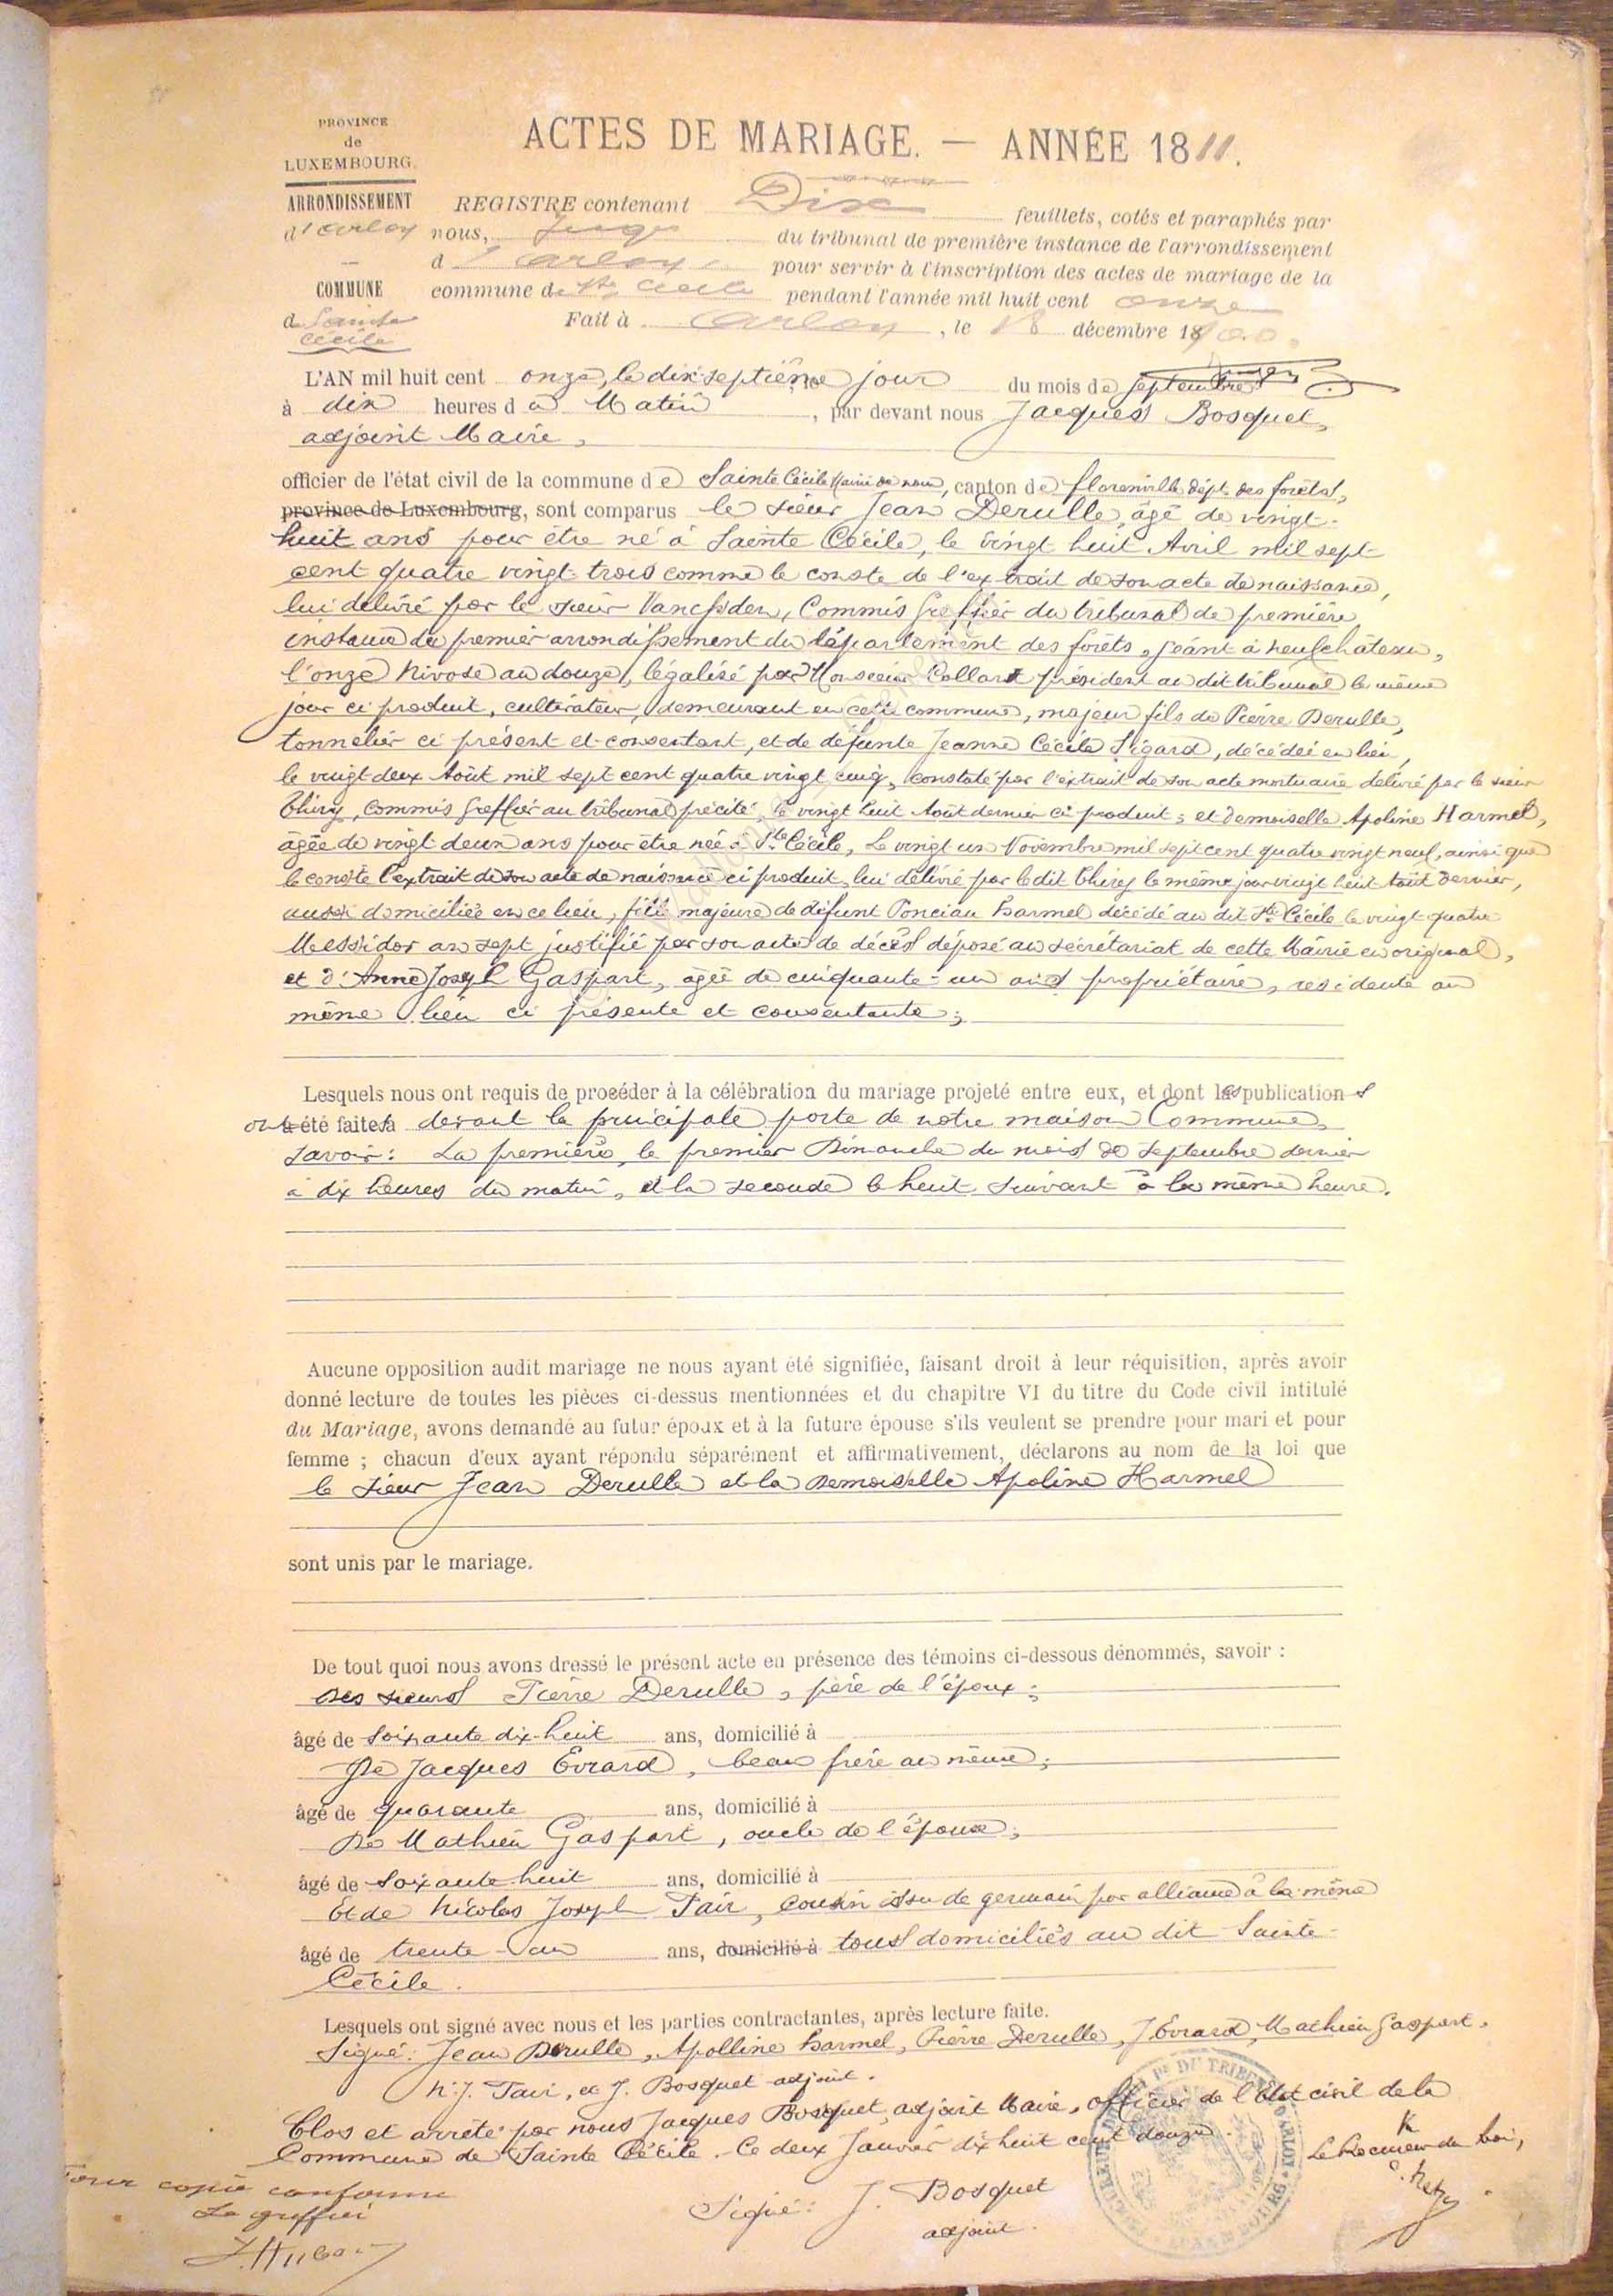 PROVINCE
de
LUXEMBOURG.
ACTES DE MARIAGE. — ANNÉE 1811.
ARRONDISSEMENT
d'Arlon
REGISTRE contenant Dix feuillets, cotés et paraphés par
nous, Juge du tribunal de première instance de l'arrondissement
d'Arlon pour servir à l'inscription des actes de mariage de la
COMMUNE
de Sainte
Cécile
commune de Ste Cécile pendant l'année mil huit cent onze
Fait à Arlon, le 18 décembre 1900.
L'AN mil huit cent onze, le dix-septième jour du mois de septembre
à dix heures du Matin, par devant nous Jacques Bosquet,
adjoint Maire,
officier de l'état civil de la commune de Sainte Cécile Mairie de nom, canton de florenville, dépt. des forêts,
province de Luxembourg, sont comparus le sieur Jean Derulle, âgé de vingt-
huit ans pour être né à Sainte Cécile, le vingt huit Avril mil sept-
cent quatre vingt-trois comme le conste de l'extrait de son acte de naissance,
lui délivré par le sieur, Commis Greffier du tribunal de première
instance du premier arrondissement du département des forêts, séant à neufchâteau,
l'onze Nivose an douze, légalisé par Monsieur Collart président au dit tribunal le même
jour ci produit, cultivateur, demeurant en cette commune, majeur fils de Pierre Derulle,
tonnelier ci présent et consentant, et de défunte Jeanne Cécile Sigard, décédée en lieu,
le vingt deux Août mil sept cent quatre vingt cinq, constaté par l'extrait de son acte mortuaire délivré par le sieur
Thiry, commis Greffier au tribunal précité, le vingt huit Août dernier ci produit; et demoiselle Apoline Harmel,
âgée de vingt-deux ans pour être née à Ste Cécile, le vingt un Novembre mil sept cent quatre vingt neuf, ainsi que
le conste l'extrait de son acte de naissance ci produit, lui délivré par le dit Thiry le même jour vingt huit Août dernier,
aussi domiciliée en ce lieu, fille majeure de défunt Poncian Harmel décédé au dit Ste Cécile le vingt-quatre
Messidor an sept justifié par son acte de décès déposé au secrétariat de cette Mairie en original,
et d'Anne Joseph Gaspart, âgée de cinquante-un ans propriétaire, résidente au
même lieu ci présente et consentante;
Lesquels nous ont requis de procéder à la célébration du mariage projeté entre eux, et dont les publications
ont été faites à devant la principale porte de notre maison Commune,
savoir: La première, le premier Dimanche du mois de septembre dernier
à dix heures du matin, et la seconde le huit suivant à la même heure.
Aucune opposition audit mariage ne nous ayant été signifiée, faisant droit à leur réquisition, après avoir
donné lecture de toutes les pièces ci-dessus mentionnées et du chapitre VI du titre du Code civil intitulé
du Mariage, avons demandé au futur époux et à la future épouse s'ils veulent se prendre pour mari et pour
femme ; chacun d'eux ayant répondu séparément et affirmativement, déclarons au nom de la loi que
le sieur Jean Derulle et la Demoiselle Apoline Harmel
sont unis par le mariage.
De tout quoi nous avons dressé le présent acte en présence des témoins ci-dessous dénommés, savoir :
Des sieurs Pierre Derulle, père de l'époux;
âgé de soixante dix-huit ans, domicilié à
De Jacques Evrard, beau frère au même;
âgé de quarante ans, domicilié à
De Mathieu Gaspart, oncle de l'épouse;
âgé de soixante huit ans, domicilié à
Et de Nicolas Joseph Pair, cousin issu de germain par alliance à la même
âgé de trente-un ans, domicilié à tous domiciliés au dit Sainte-
Cécile.
Lesquels ont signé avec nous et les parties contractantes, après lecture faite.
Signé: Jean Derulle, Apolline Harmel, Pierre Derulle, J. Evrard, Mathieu Gaspart,
N. J. Pair, et J. Bosquet adjoint.
Clos et arrêté par nous Jacques Bosquet, adjoint Maire, officier de l'état civil de la
Commune de Sainte Cécile. Ce deux Janvier dix huit cent douze.
Le Procureur du Roi,
Pour copie conforme
Le greffier
Signé: J. Bosquet
adjoint.